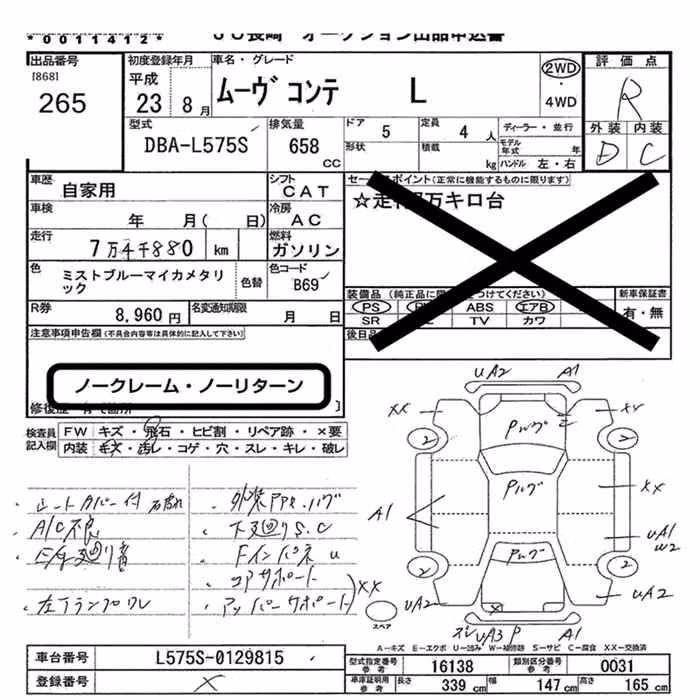 *0011412*
JU長崎 オークション出品申込書
出品番号
[868]
265
初度登録年月
平成
23 8月
車名・グレード
ムーヴ コンテ L
2WD
・
4WD
評価点
R
外装 内装
D C
型式
DBA-L575S
排気量
658
CC
ドア
5
定員
4人
ディーラー・並行
形状
積載
kg
モデル年式
年
ハンドル 左・右
車歴
自家用
シフト
CAT
車検
年 月( 日)
冷房
AC
走行
7万4千880 km
燃料
ガソリン
色
ミストブルーマイカメタリック
色替
色コード
B69
R券
8,960円
名変通知期限
月 日
セールスポイント(正常に機能するものに限ります)
☆走行7万キロ台
装備品
ABS
エアB
PS
SR
TV
カワ
新車保証書
有・無
後日品
注意事項申告欄(不具合内容等は具体的に記入して下さい)
ノークレーム・ノーリターン
検査員
記入欄
FW キズ・飛石・ヒビ割・リペア跡・×要
内装 キズ・汚レ・コゲ・穴・スレ・キレ・破レ
シートカバー付
A/C不良
左下ランプワレ
下廻りS.C
コアサポート
アッパーサポート
XX
UA2 A1
XX XX
Pハグ
2 2
A1
Pハグ
XX
UA1
W2
Pハグ
2 2
UA2 UA2
UA3 P A1
スペア
A－キズ E－エクボ U－凹み W－補修跡 S－サビ C－腐食 XX－交換済
車台番号
L575S-0129815
登録番号
×
型式指定番号
参考
16138
類別区分番号
参考
0031
車庫証明用
参考
長さ
339 cm
幅
147 cm
高さ
165 cm